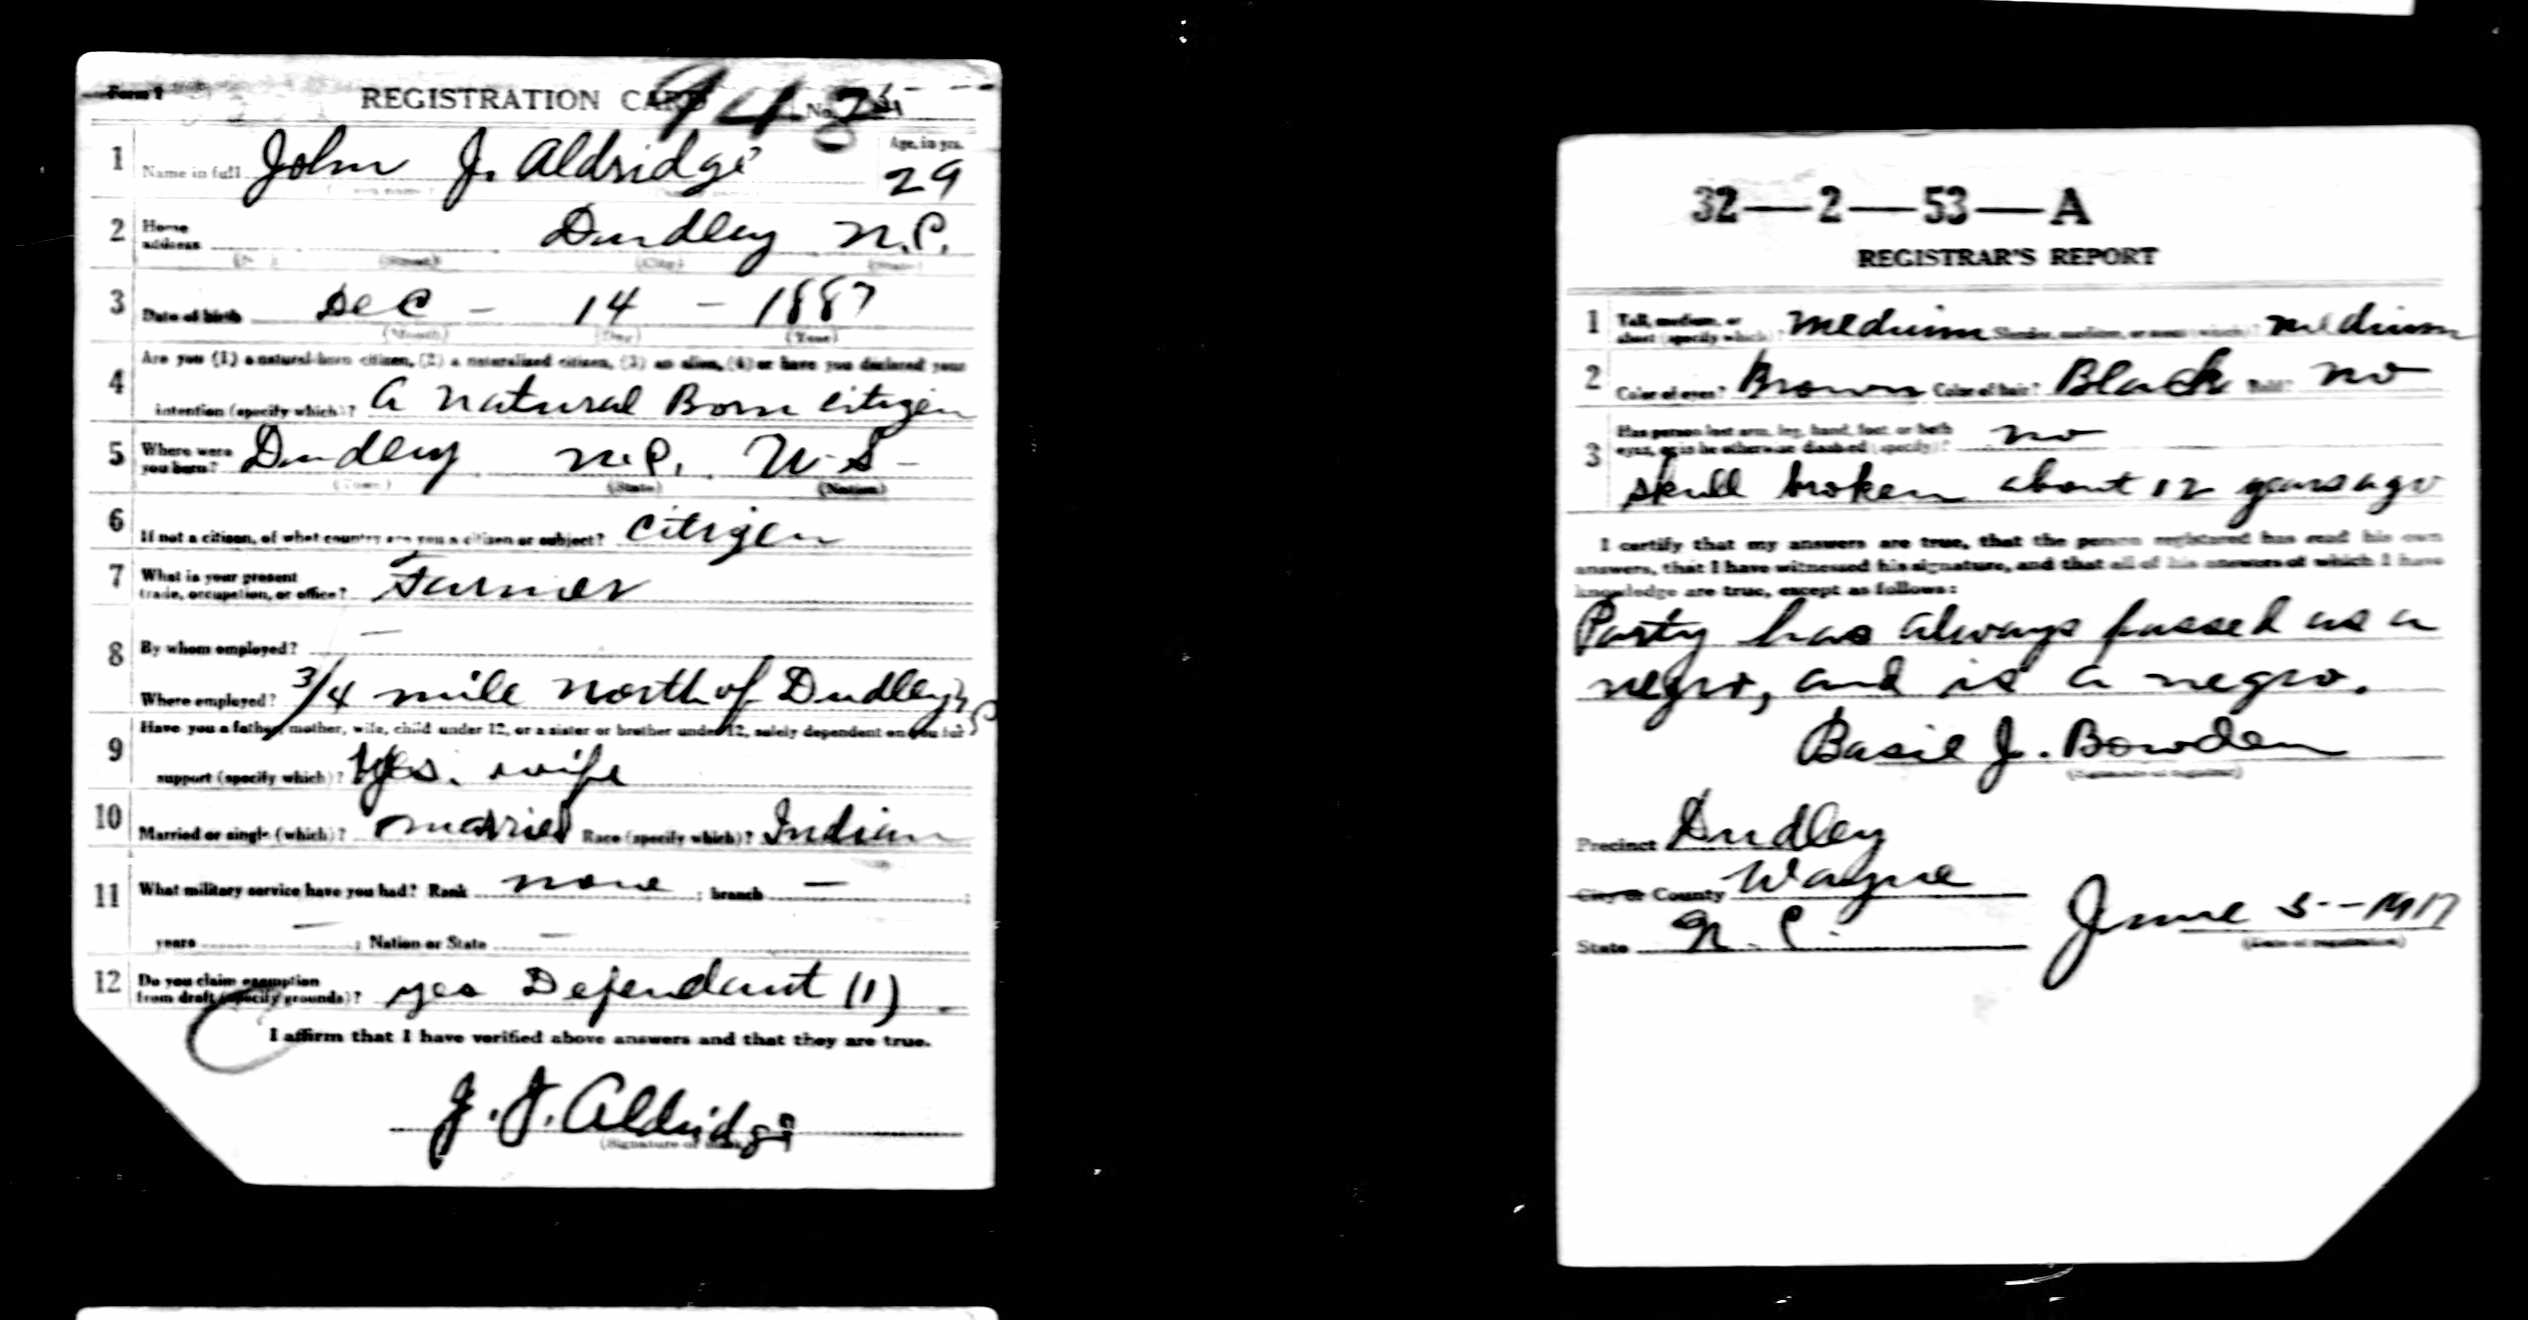 Form 1 REGISTRATION CARD No.
1 Name in full John J. Aldridge Age, in yrs. 29
2 Home address Dudley N.C.
(No.) (Street) (City) (State)
3 Date of birth Dec - 14 - 1887
(Month) (Day) (Year)
4 Are you (1) a natural-born citizen, (2) a naturalized citizen, (3) an alien, (4) or have you declared your
intention (specify which)? A natural Born citizen
5 Where were you born? Dudley N.C. U.S-
(Town) (State) (Nation)
6 If not a citizen, of what country are you a citizen or subject? citizen
7 What is your present
trade, occupation, or office? Farmer
8 By whom employed? —
Where employed? 3/4 mile north of Dudley N C
9 Have you a father, mother, wife, child under 12, or a sister or brother under 12, solely dependent on you for
support (specify which)? Yes. wife
10 Married or single (which)? married Race (specify which)? Indian
11 What military service have you had? Rank none ; branch — ;
years — ; Nation or State —
12 Do you claim exemption
from draft (specify grounds)? yes Defendant (1)
I affirm that I have verified above answers and that they are true.
J. J. Aldridge
(Signature or mark)
32—2—53—A
REGISTRAR'S REPORT
1 Tall, medium, or
short (specify which)? Medium Slender, medium, or stout (which)? medium
2 Color of eyes? Brown Color of hair? Black Bald? no
3 Has person lost arm, leg, hand, foot, or both
eyes, or is he otherwise disabled (specify)? no
skull broken about 12 years ago
I certify that my answers are true, that the person registered has read his own
answers, that I have witnessed his signature, and that all of his answers of which I have
knowledge are true, except as follows:
Party has always passed as a
negro, and is a negro.
Basil J. Bowden
(Signature of registrar)
Precinct Dudley
City or County Wayne
State N. C.
June 5--1917
(Date of registration)